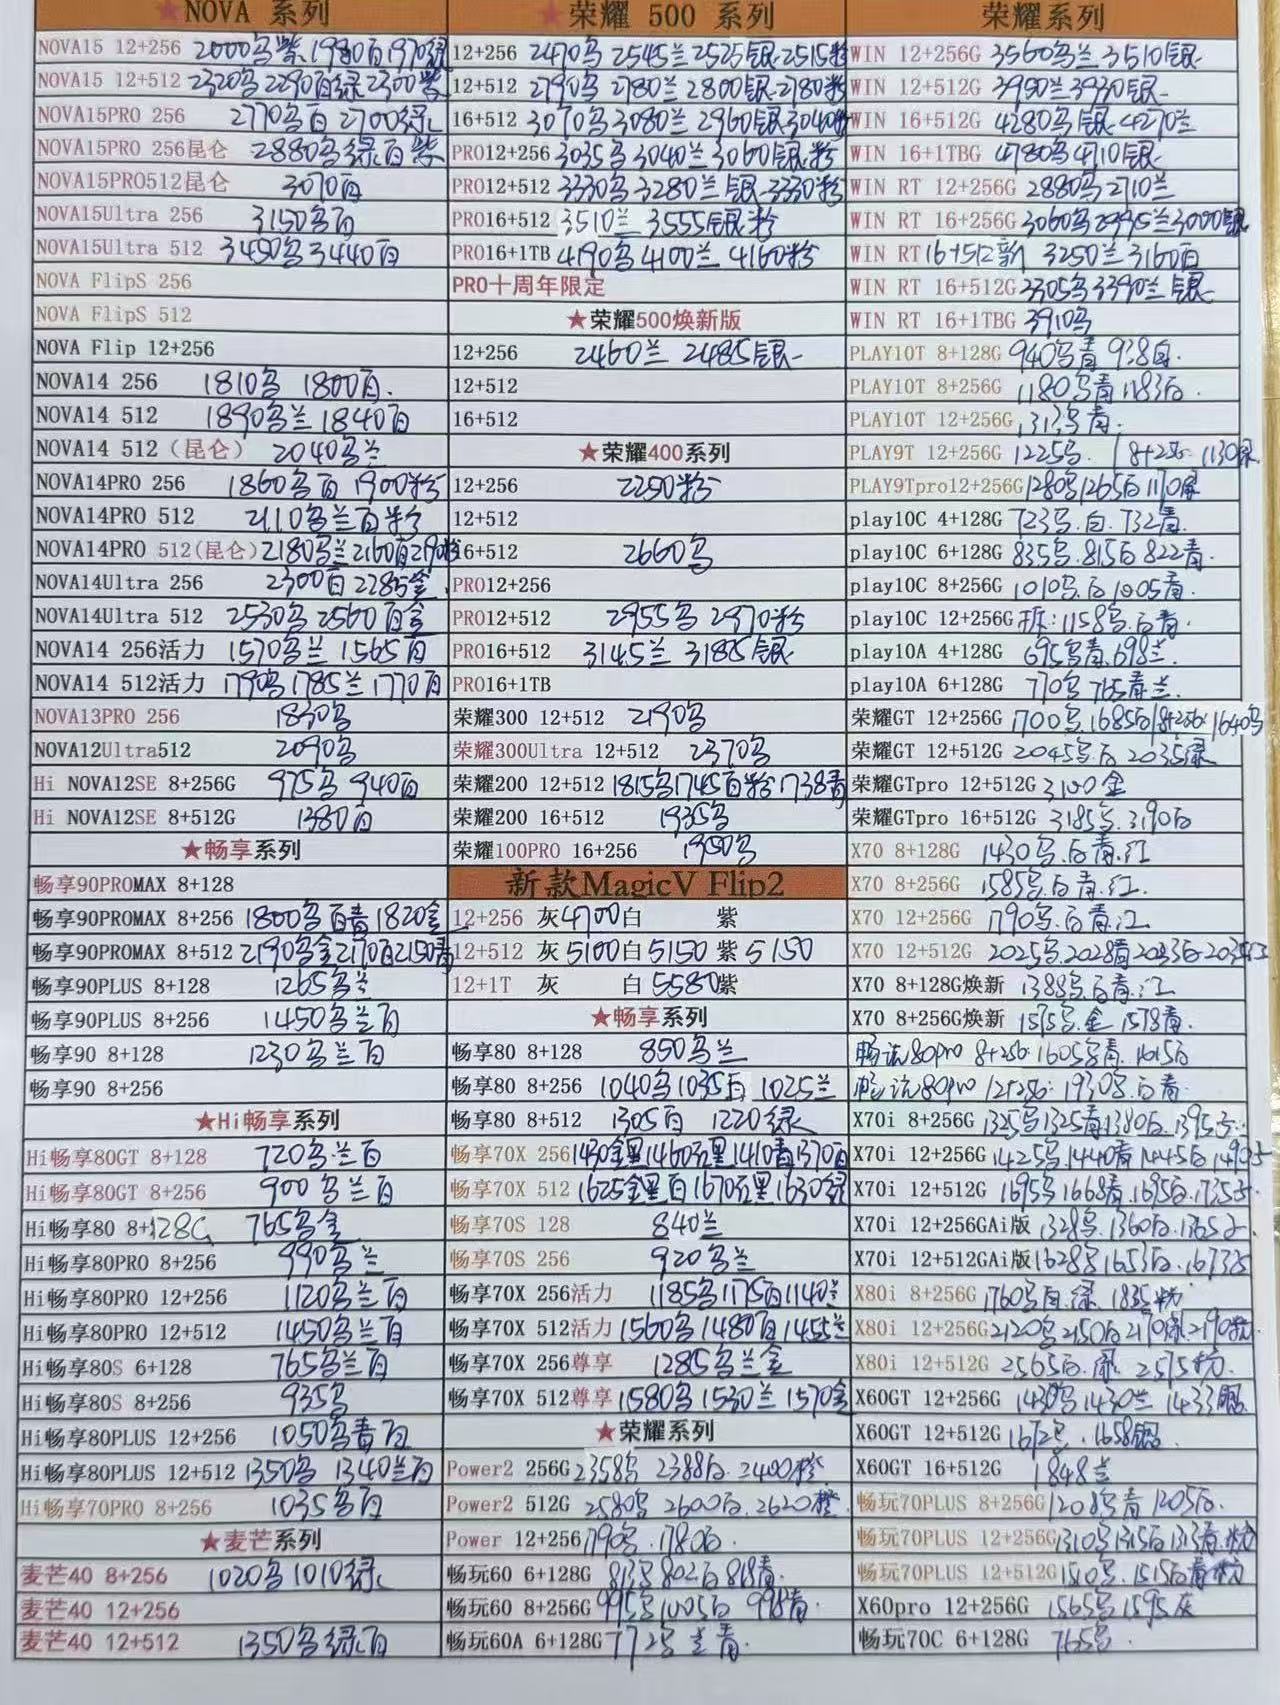 ★NOVA 系列
NOVA15 12+256 2000乌紫1980百1970绿
NOVA15 12+512 2320乌2290百绿2300紫
NOVA15PRO 256 2770乌百 2700绿
NOVA15PRO 256昆仑 2880乌绿百紫
NOVA15PRO512昆仑 3070百
NOVA15Ultra 256 3150乌百
NOVA15Ultra 512 3450乌3440百
NOVA FlipS 256
NOVA FlipS 512
NOVA Flip 12+256
NOVA14 256 1810乌 1800百
NOVA14 512 1890乌兰1840百
NOVA14 512（昆仑） 2040乌兰
NOVA14PRO 256 1860乌百 1900粉
NOVA14PRO 512 2110乌兰百粉
NOVA14PRO 512(昆仑) 2180乌兰2160百2190粉
NOVA14Ultra 256 2300百2285金
NOVA14Ultra 512 2530乌2560百金
NOVA14 256活力 1570乌兰 1565百
NOVA14 512活力 1790乌1785兰1770百
NOVA13PRO 256 1830乌
NOVA12Ultra512 2090乌
Hi NOVA12SE 8+256G 975乌 940百
Hi NOVA12SE 8+512G 1380百
★畅享系列
畅享90PROMAX 8+128
畅享90PROMAX 8+256 1800乌百青1820金
畅享90PROMAX 8+512 2190乌金2170百2150青
畅享90PLUS 8+128 1265乌兰
畅享90PLUS 8+256 1450乌兰百
畅享90 8+128 1230乌兰百
畅享90 8+256
★Hi畅享系列
Hi畅享80GT 8+128 720乌兰百
Hi畅享80GT 8+256 900乌兰百
Hi畅享80 8+128G 765乌金
Hi畅享80PRO 8+256 990乌兰
Hi畅享80PRO 12+256 1120乌兰百
Hi畅享80PRO 12+512 1450乌兰百
Hi畅享80S 6+128 765乌兰百
Hi畅享80S 8+256 935乌
Hi畅享80PLUS 12+256 1050乌青百
Hi畅享80PLUS 12+512 1350乌 1340兰百
Hi畅享70PRO 8+256 1035乌百
★麦芒系列
麦芒40 8+256 1020乌1010绿
麦芒40 12+256
麦芒40 12+512 1350乌绿百
★荣耀 500 系列
12+256 2470乌2545兰2525银2515粉
12+512 2790乌2780兰2800银2780粉
16+512 3070乌3080兰2960银3040粉
PRO12+256 3035乌3040兰3060银粉
PRO12+512 3330乌3280兰银3330粉
PRO16+512 3510兰 3555银粉
PRO16+1TB 4190乌4100兰 4160粉
PRO十周年限定
★荣耀500焕新版
12+256 2460兰 2485银
12+512
16+512
★荣耀400系列
12+256 2250粉
12+512
16+512 2660乌
PRO12+256
PRO12+512 2955乌 2970粉
PRO16+512 3145兰 3185银
PRO16+1TB
荣耀300 12+512 2190乌
荣耀300Ultra 12+512 2370乌
荣耀200 12+512 1815乌1745百粉1738青
荣耀200 16+512 1935乌
荣耀100PRO 16+256 1950乌
新款MagicV Flip2
12+256 灰4700白 紫
12+512 灰5100白5150紫5150
12+1T 灰 白5580紫
★畅享系列
畅享80 8+128 850乌兰
畅享80 8+256 1040乌1035百1025兰
畅享80 8+512 1305百 1220绿
畅享70X 256 1430金黑1460石黑1410青1370百
畅享70X 512 1625金黑百1670石黑1630绿
畅享70S 128 840兰
畅享70S 256 920乌兰
畅享70X 256活力 1185乌1175百1140兰
畅享70X 512活力 1560乌1480百1455兰
畅享70X 256尊享 1285乌兰金
畅享70X 512尊享 1580乌1530兰1570金
★荣耀系列
Power2 256G 2358乌 2388百 2400橙
Power2 512G 2580乌 2600百 2620橙
Power 12+256 1790乌 1780百
畅玩60 6+128G 813乌802百818青
畅玩60 8+256G 995乌1005百998青
畅玩60A 6+128G 772乌兰青
荣耀系列
WIN 12+256G 3560乌兰3510银
WIN 12+512G 3950兰3930银
WIN 16+512G 4280乌银4270兰
WIN 16+1TBG 4780乌4710银
WIN RT 12+256G 2880乌2710兰
WIN RT 16+256G 3060乌2995兰3000银
WIN RT 16+512新 3250兰3160百
WIN RT 16+512G 3305乌3390兰银
WIN RT 16+1TBG 3910乌
PLAY10T 8+128G 940乌青 938百
PLAY10T 8+256G 1180乌青1183百
PLAY10T 12+256G 1313乌青
PLAY9T 12+256G 1225乌 8+256 1130绿
PLAY9Tpro12+256G 1280乌1265百1170绿
play10C 4+128G 723乌百732青
play10C 6+128G 835乌815百822青
play10C 8+256G 1010乌百1005青
play10C 12+256G 1158乌百青
play10A 4+128G 695乌青698兰
play10A 6+128G 770乌765青兰
荣耀GT 12+256G 1700乌1685百8+256 1640乌
荣耀GT 12+512G 2045乌百2035绿
荣耀GTpro 12+512G 3100金
荣耀GTpro 16+512G 3185乌3190百
X70 8+128G 1430乌百青红
X70 8+256G 1585乌百青红
X70 12+256G 1790乌百青红
X70 12+512G 2025乌2028青2033百2035红
X70 8+128G焕新 1388乌百青红
X70 8+256G焕新 1575乌金 1578青
畅玩80pro 8+256 1605乌青1615百
畅玩80pro 12+256 1930乌百青
X70i 8+256G 1325乌1325青1380百1395
X70i 12+256G 1425乌1440青1445百1490
X70i 12+512G 1695乌1668青1695百1735
X70i 12+256GAi版 1328乌1360百1365
X70i 12+512GAi版 1628乌1653百1673
X80i 8+256G 1760乌百绿 1835粉
X80i 12+256G 2120乌2150百2170绿2190粉
X80i 12+512G 2565百绿 2575粉
X60GT 12+256G 1430乌1430兰1433银
X60GT 12+512G 1658银
X60GT 16+512G 1848兰
畅玩70PLUS 8+256G 1208乌青1205百
畅玩70PLUS 12+256G 1310乌1315百1313青粉
畅玩70PLUS 12+512G 1510乌1515百青粉
X60pro 12+256G 1565乌1595灰
畅玩70C 6+128G 765乌